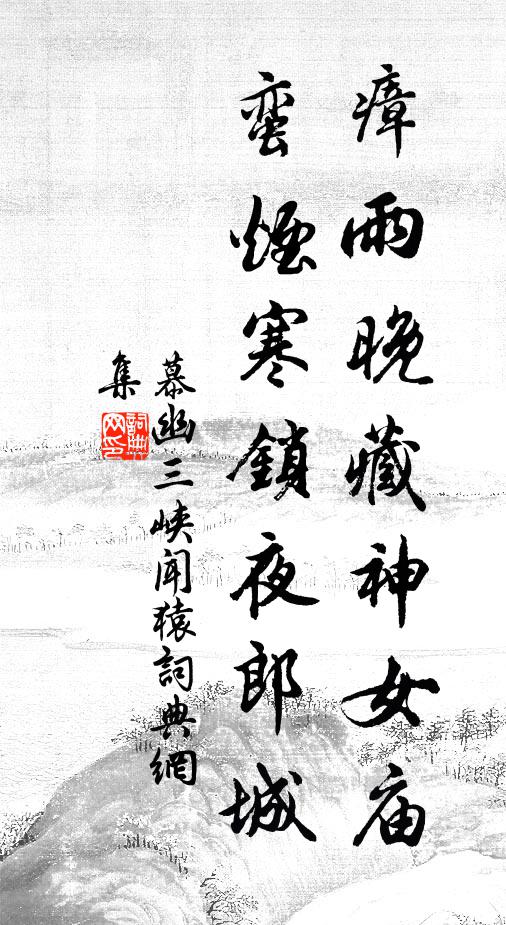 瘴雨晚藏神女庙
蛮煙寒鎖夜郎城
慕幽三峽闻猿詞典網
集
詞典网印